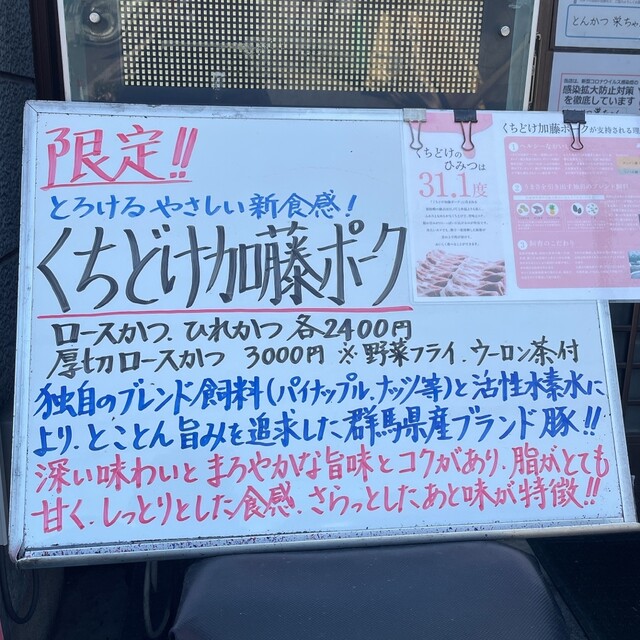 とんかつ 栄ちゃ
感染拡大防止対策
を徹底しています
限定!!
とろけるやさしい新食感!
くちどけ加藤ポーク
ロースかつ、ひれかつ 各2400円
厚切ロースかつ 3000円 ※野菜フライ、ウーロン茶付
独自のブレンド飼料(パイナップル、ナッツ等)と活性水素水に
より、とことん旨みを追求した群馬県産ブランド豚!!
深い味わいとまろやかな旨味とコクがあり、脂がとても
甘く、しっとりとした食感、さらっとしたあと味が特徴!!
くちどけの
ひみつは
31.1度
くちどけ加藤ポークが支持される理
1
2
3